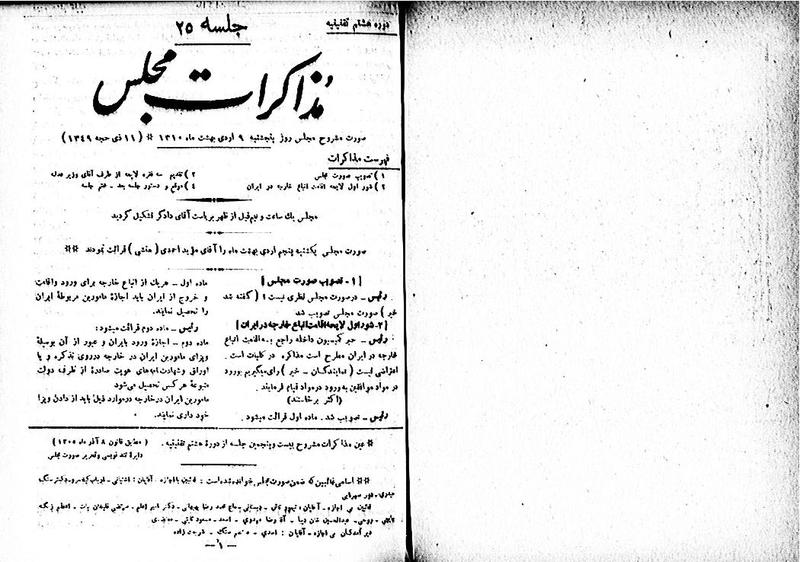 دوره هشتم تقنینیه
جلسه ۲۵
مذاکرات مجلس
صورت مشروح مجلس روز پنجشنبه ۹ اردی بهشت ماه ۱۳۱۰ * (۱۱ ذی حجه ۱۳۴۹)
فهرست مذاکرات
۱) تصویب صورت مجلس
۲) شور اول لایحه اقامت اتباع خارجه در ایران
۳) تقدیم سه فقره لایحه از طرف آقای وزیر عدلیه
۴) موقع و دستور جلسه بعد - ختم جلسه
مجلس یک ساعت و نیم قبل از ظهر بریاست آقای دادگر تشکیل گردید
صورت مجلس یکشنبه پنجم اردی بهشت ماه را آقای مؤید احمدی (منشی) قرائت نمودند **
[۱ - تصویب صورت مجلس]
رئیس - در صورت مجلس نظری نیست؟ (گفته شد
خیر) صورت مجلس تصویب شد
[۲- شور اول لایحه اقامت اتباع خارجه در ایران]
رئیس - خبر کمیسیون داخله راجع به اقامت اتباع
خارجه در ایران مطرح است مذاکره در کلیات است.
اعتراضی نیست (نمایندگان - خیر) رأی میگیریم بورود
در مواد موافقین به ورود در مواد قیام فرمایند
(اکثر برخاستند)
رئیس - تصویب شد. ماده اول قرائت میشود.
ماده اول - هر یک از اتباع خارجه برای ورود و اقامت
و خروج از ایران باید اجازهٔ مأمورین مربوطهٔ ایران
را تحصیل نمایند.
رئیس - ماده دوم قرائت میشود:
ماده دوم - اجازهٔ ورود بایران و عبور از آن بوسیلهٔ
ویزای مأمورین ایران در خارجه در روی تذکره و یا
اوراق و شهادت نامه‌های هویت صادرهٔ از طرف دولت
متبوعهٔ هر کس تحصیل می‌شود
مأمورین ایران در خارجه در موارد ذیل باید از دادن ویزا
خود داری نمایند.
* عین مذاکرات مشروح بیست و پنجمین جلسه از دورهٔ هشتم تقنینیه. (مطابق قانون ۸ آذر ماه ۱۳۰۵)
دایرهٔ تند نویسی و تحریر صورت مجلس
** اسامی غائبین که ضمن صورت مجلس خوانده شده است: غائبین با اجازه. آقایان:
غائبین بی اجازه - آقایان:
دیر آمدگان بی اجازه - آقایان: اسدی -
- ۱ -